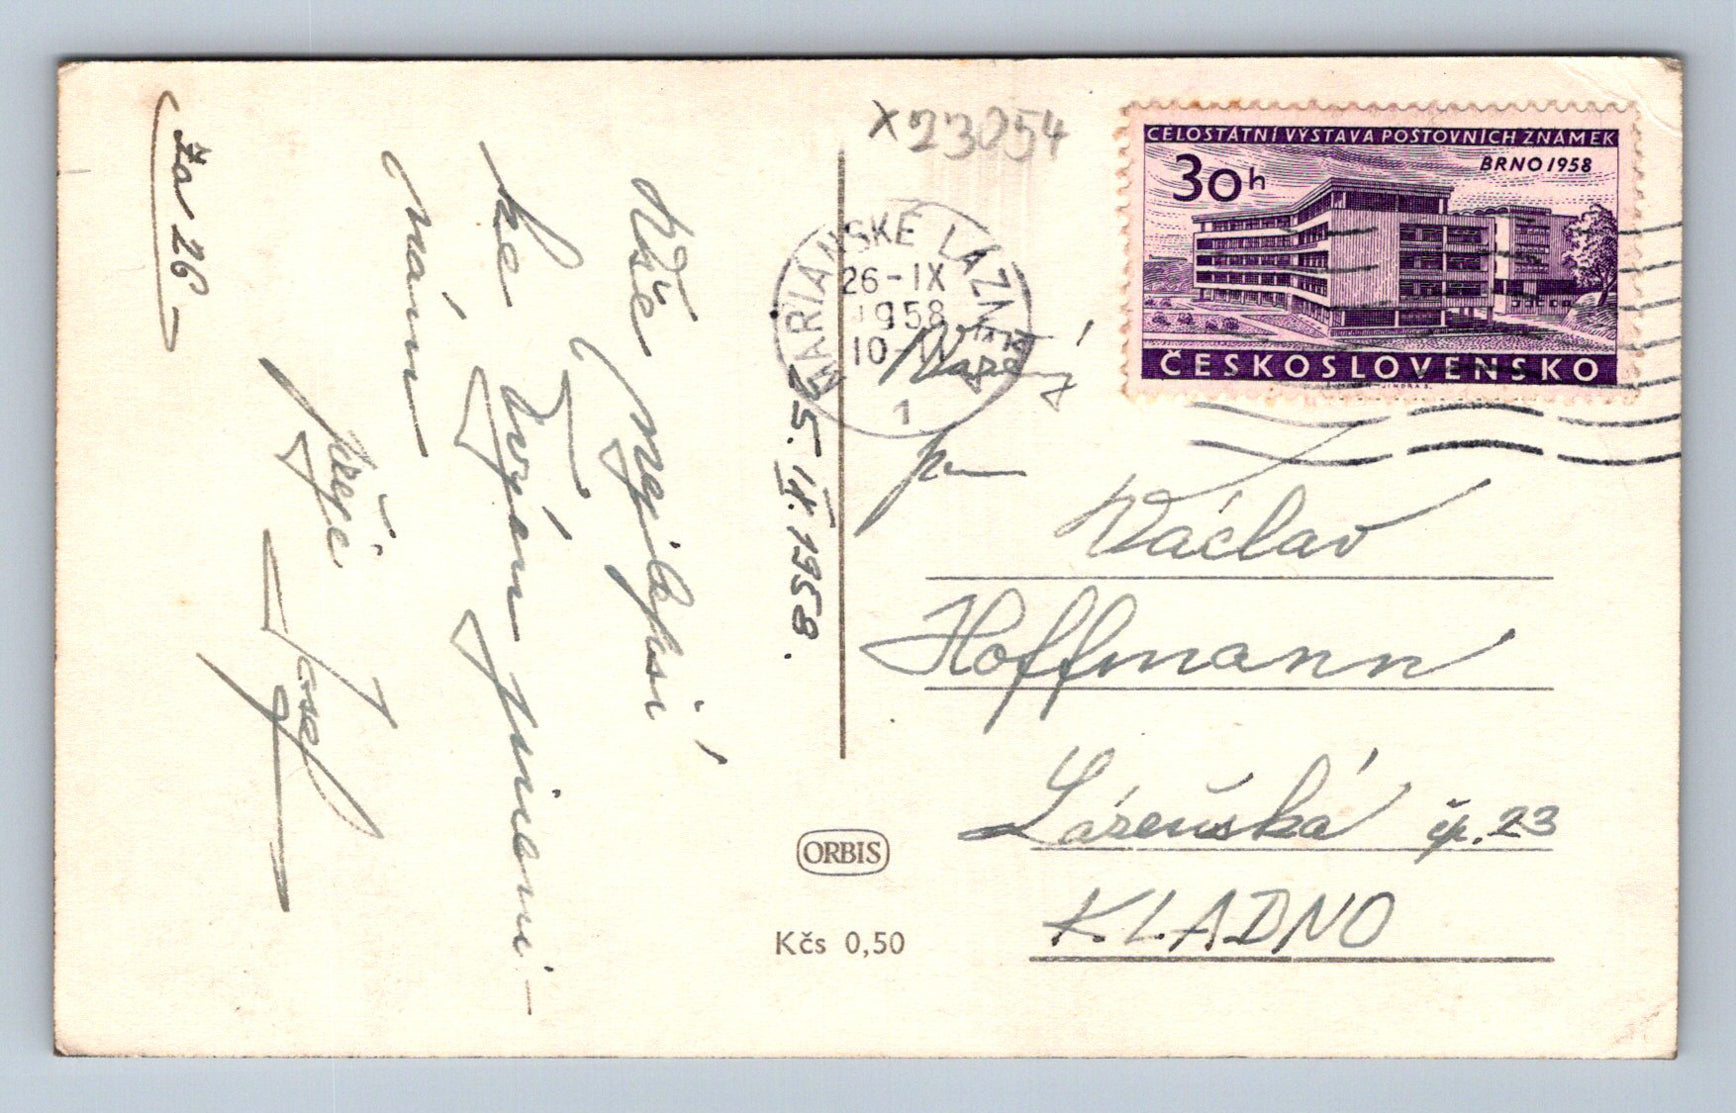 x23054
CELOSTÁTNÍ VÝSTAVA POŠTOVNÍCH ZNÁMEK
BRNO 1958
30h
ČESKOSLOVENSKO
MARIÁNSKÉ LÁZNĚ
26-IX
1958
10
1
25. IX. 1958.
Vše nejlepší
ke Tvým jmeni-
nám
přeje
Josef
Za 26
Vážený
pan
Václav
Hoffmann
Lázeňská čp. 23
KLADNO
ORBIS
Kčs 0,50